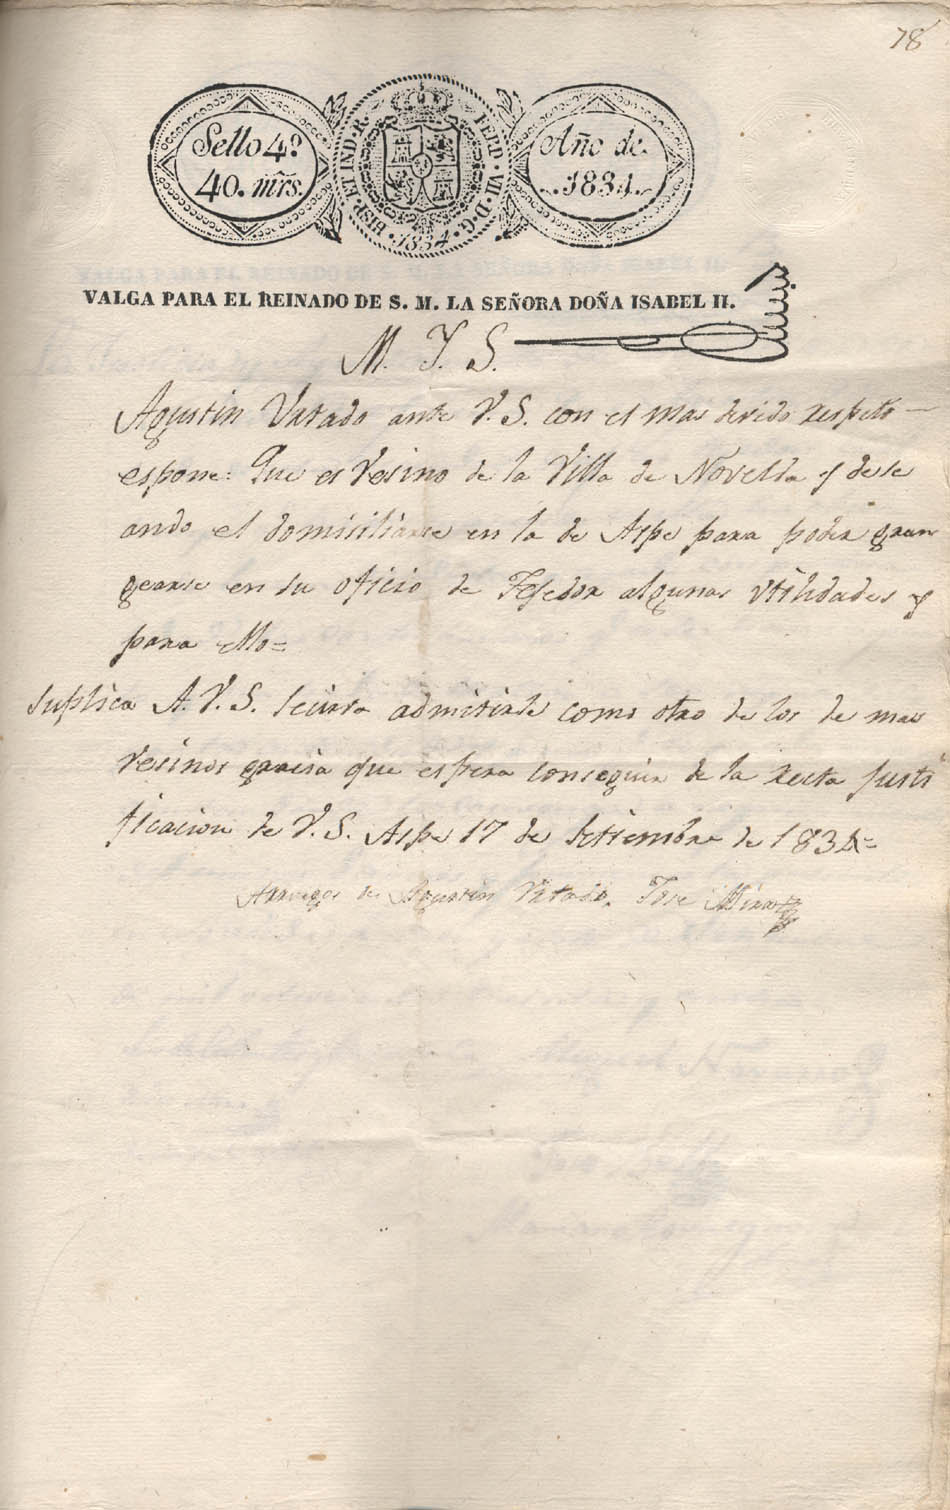 78
Sello 4º
40. mrs.
HISP. ET IND. R. FERD. VII. D. G. 1834
Año de
1834.
VALGA PARA EL REINADO DE S. M. LA SEÑORA DOÑA ISABEL II.
M. Y. S.
Agustin ante V. S. con el mas devido respeto
espone: Que es Vesino de la Villa de Novelda y dese
ando el domisiliarse en la de Aspe para poder gran
gearse en su oficio de Tejedor algunas utilidades y
para ello=
Suplica A. V. S. se sirva admitirle como otro de los de mas
Vesinos grasia que espera conseguir de la recta justi
ficacion de V. S. Aspe 17 de Setiembre de 1834=
Arruegos de Agustin Jose